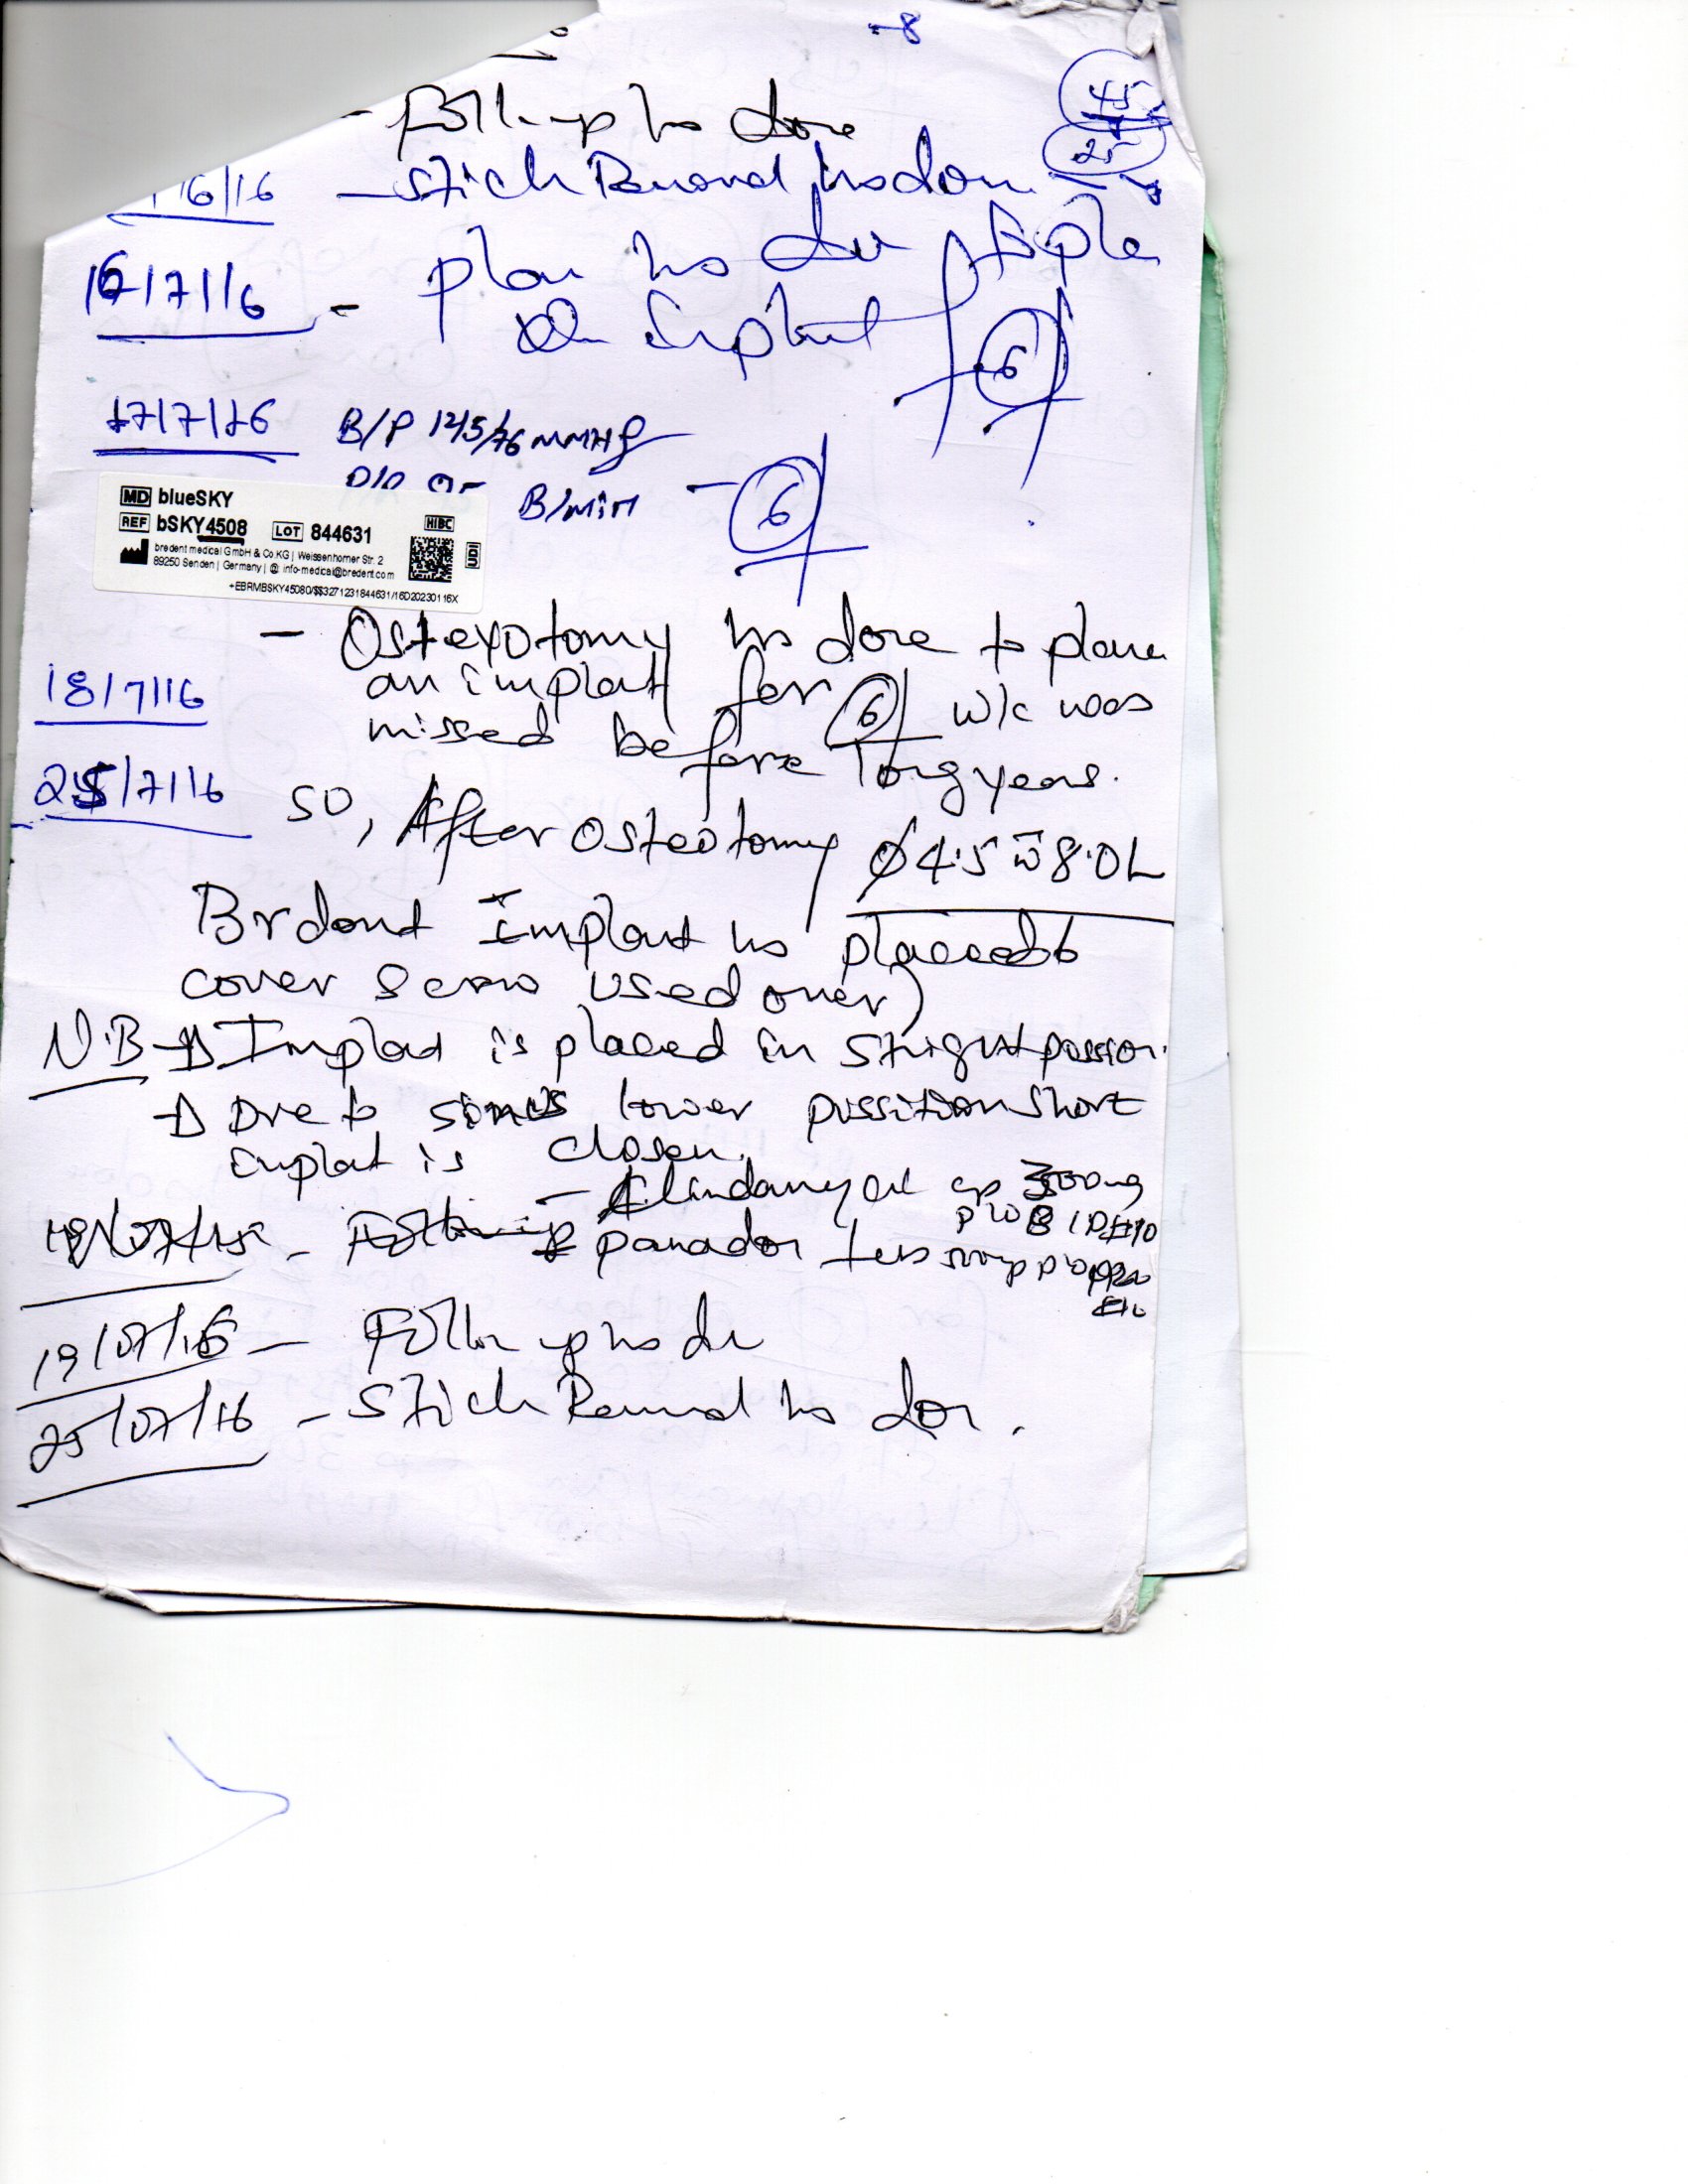 -8
- Follow up was done
45
25
6/16 - Stich Removal was done
16/7/16 - plan was
Implant 6
17/7/16 B/P 125/76 mmHg
B/min - 6
MD blueSKY
REF bSKY4508 LOT 844631 HIBC
UDI
bredent medical GmbH & Co.KG | Weissenhorner Str. 2
89250 Senden | Germany | @ info-medical@bredent.com
+EBRMBSKY45080/$$3271231844631/16D20230116X
- Osteyotomy was done to place
18/7/16 an implant for 6 w/c was
missed before long years.
25/7/16 SO, After Osteotomy Ø4.5 w 8.0L
Brdent Implant was placed &
cover screw used over)
N.B → Implant is placed in straight
→ Due to sinus lower possition short
implant is chosen.
- Clindamycin cp 300mg
panador
19/07/16 - Follow up was done
25/07/16 - Stich Removal was done.